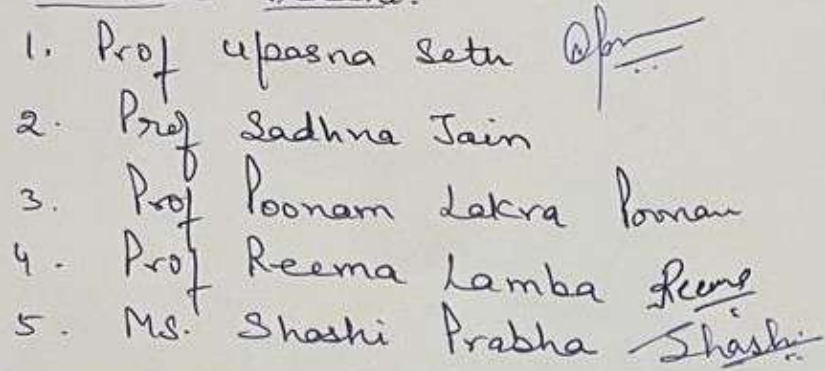 1. Prof Upasna Seth
2. Prof Sadhna Jain
3. Prof Poonam Lakra Poonam
4. Prof Reema Lamba Reema
5. Ms. Shashi Prabha Shashi